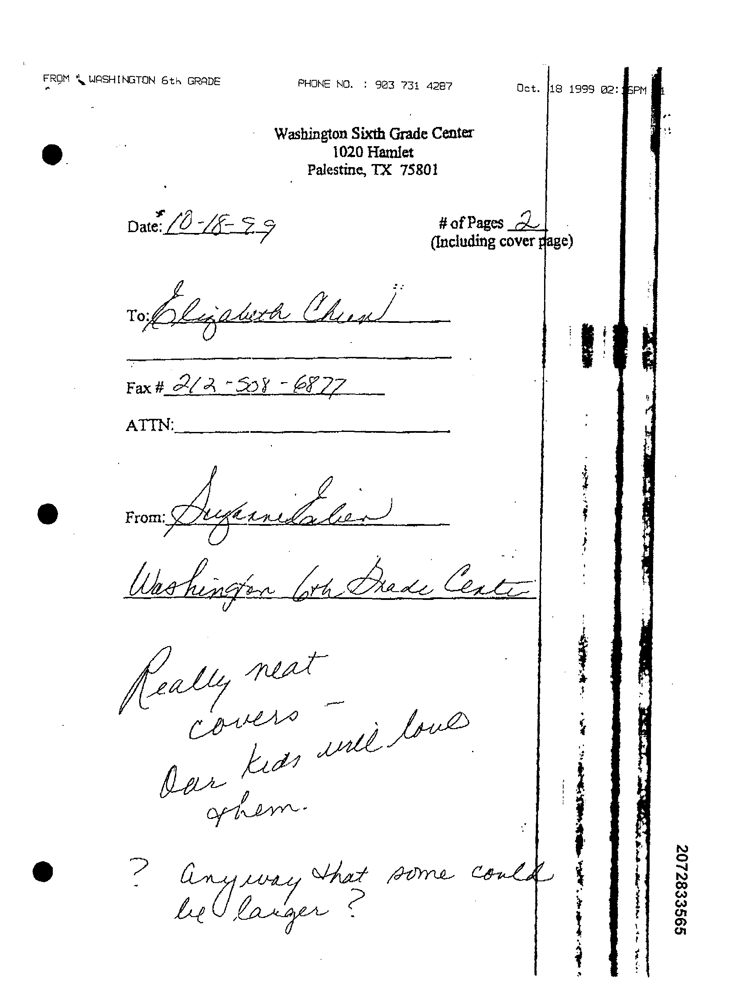 FROM WASHINGTON 6th GRADE PHONE NO. : 903 731 4287 Oct. 18 1999 02: 6PM
Washington Sixth Grade Center
1020 Hamlet
Palestine, TX 75801
Date: 10-18-99 # of Pages 2
(Including cover page)
To: Elizabeth
Fax # 212-508-6877
ATTN:
From: Suzanne
Washington 6th Grade Cente
Really neat
covers –
Our kids will love
them.
? Anyway that some could
be larger?
2072833565